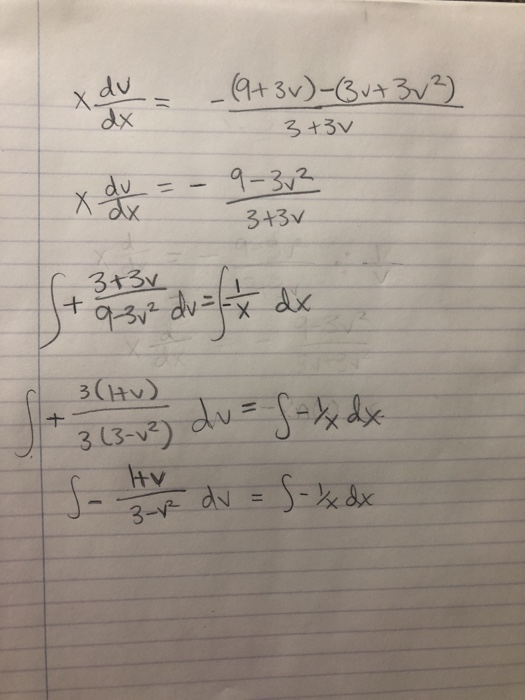 x dv/dx = -(9+3v)-(3v+3v²)/3+3v
x dv/dx = - 9-3v²/3+3v
∫ + 3+3v/9-3v² dv = ∫ -1/x dx
∫ + 3(1+v)/3(3-v²) dv = ∫ -1/x dx
∫ - 1+v/3-v² dv = ∫ -1/x dx